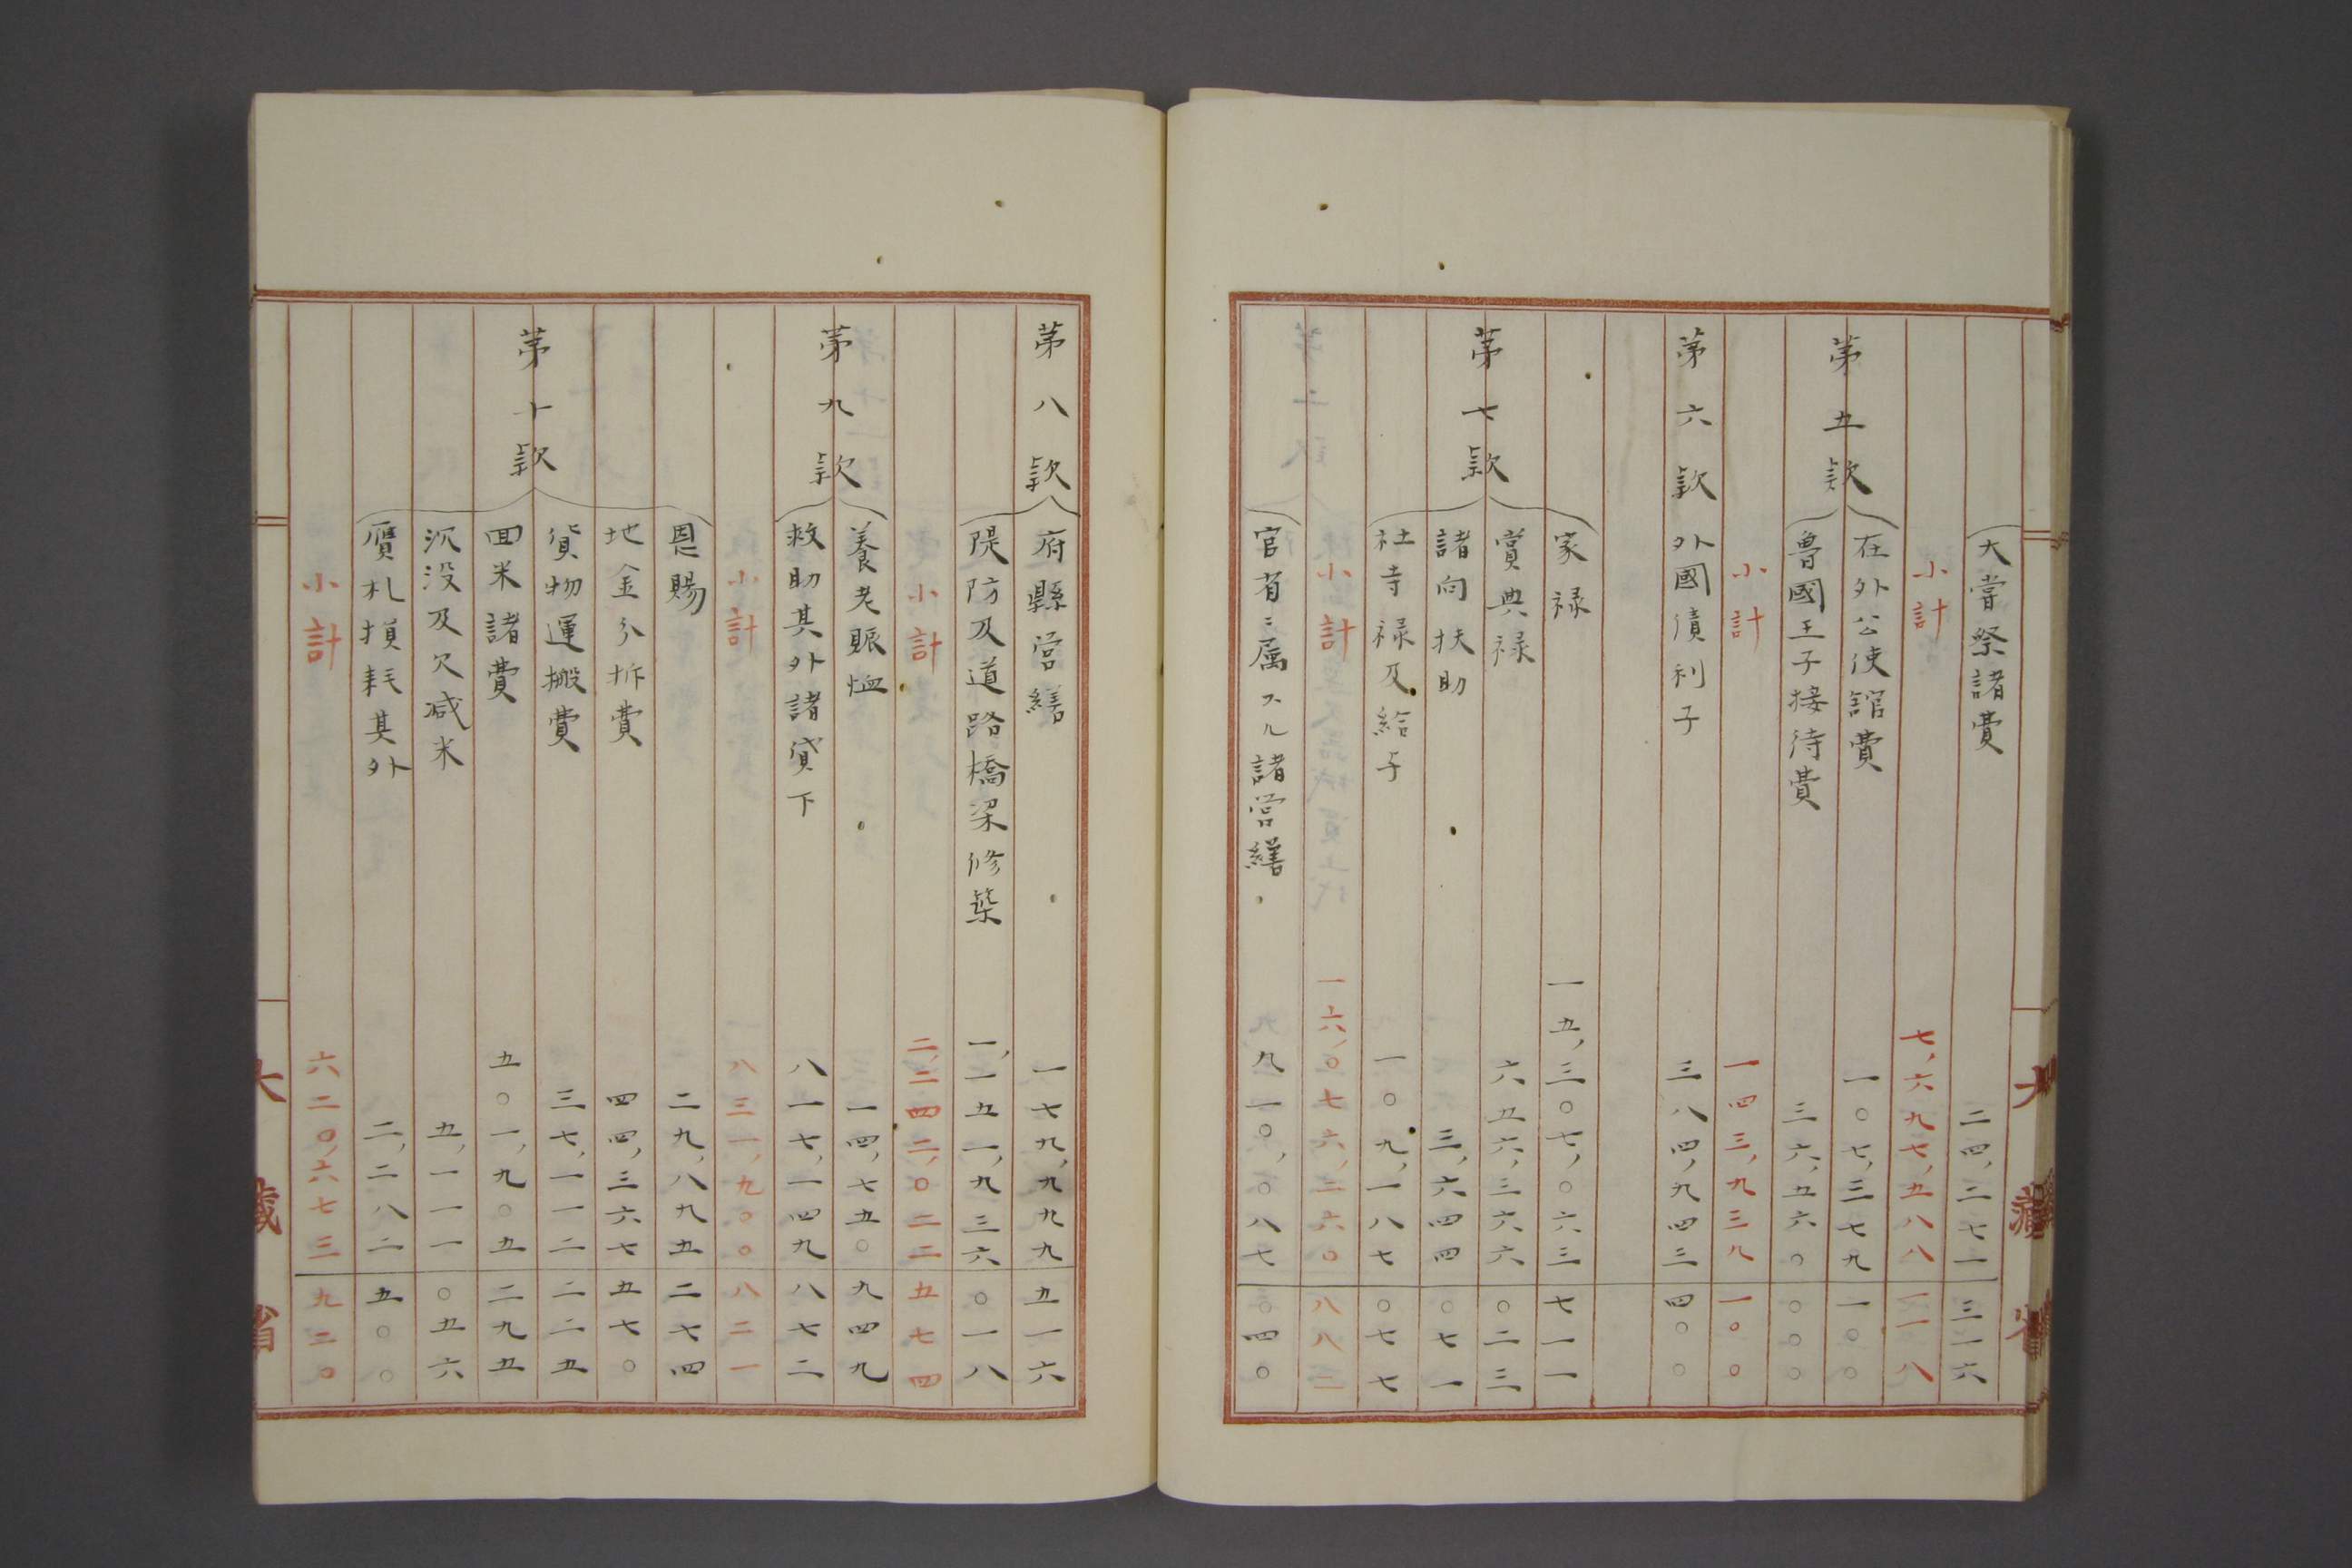 大甞祭諸費 二四,二七一 三一六
小計 七,六九七,五八八 一一八
第五款
在外公使館費 一〇七,三七九 一〇〇
魯國王子接待費 三六,五六〇 〇〇〇
小計 一四三,九三九 一〇〇
第六款 外國債利子 三八四,九四三 四〇〇
第七款
家禄 一五,三〇七,〇六三 七一一
賞典禄 六五六,三六六 〇二三
諸向扶助 三,六四四 〇七一
社寺禄及給与 一〇九,一八七 〇七七
小計 一六,〇七六,二六〇 八八二
官省ニ属スル諸営繕 九一〇,〇八七 〇四〇
第八款
府縣営繕 一七九,九九九 五一六
隄防及道路橋梁修築 一,一五一,九三六 〇一八
小計 二,二四二,〇二二 五七四
第九款
養老賑恤 一四,七五〇 九四九
救助其外諸貸下 八一七,一四九 八七二
小計 八三一,九〇〇 八二一
第十款
恩賜 二九,八九五 二七四
地金分析費 四四,三六七 五七〇
貨物運搬費 三七,一一二 二二五
囬米諸費 五〇一,九〇五 二九五
沉没及欠减米 五,一一一 〇五六
贋札損耗其外 二,二八二 五〇〇
小計 六二〇,六七三 九二〇
大藏省